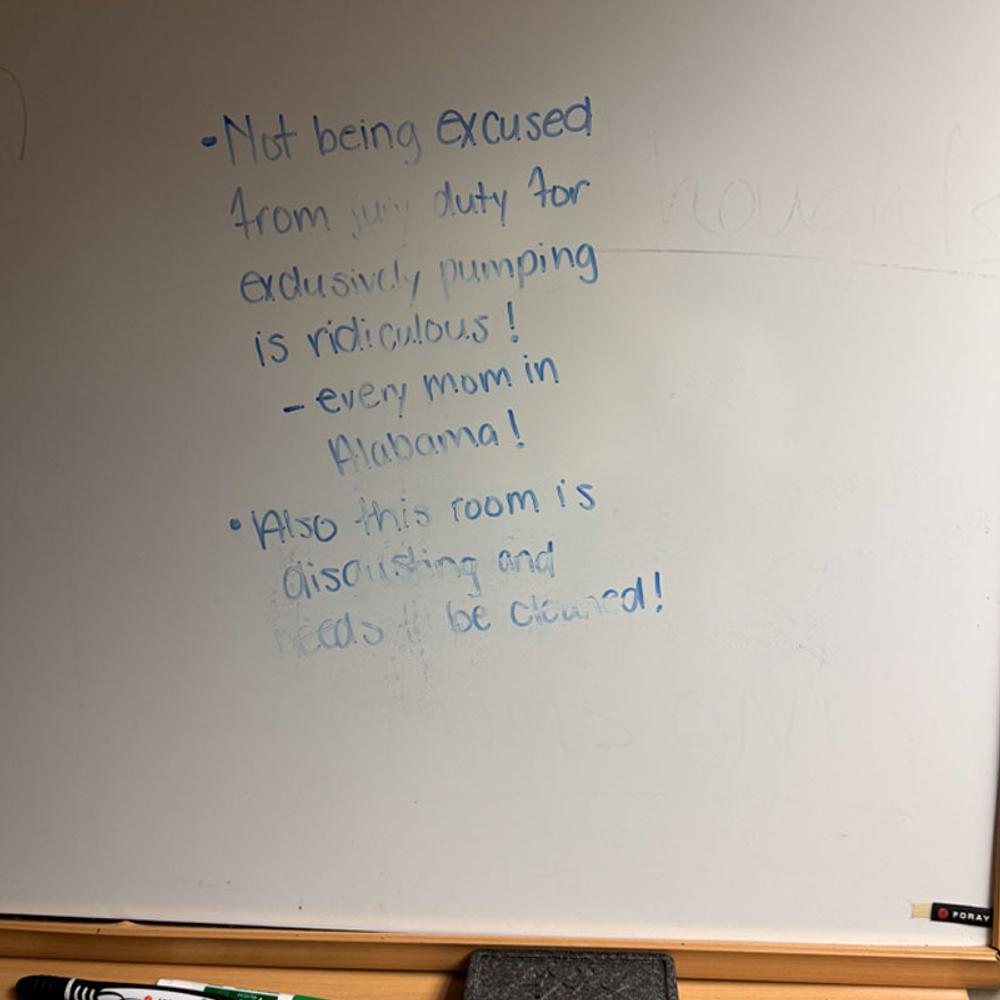 • Not being excused
from jury duty for
exclusively pumping
is ridiculous!
- every mom in
Alabama!
• Also this room is
disgusting and
needs to be cleaned!
FORAY